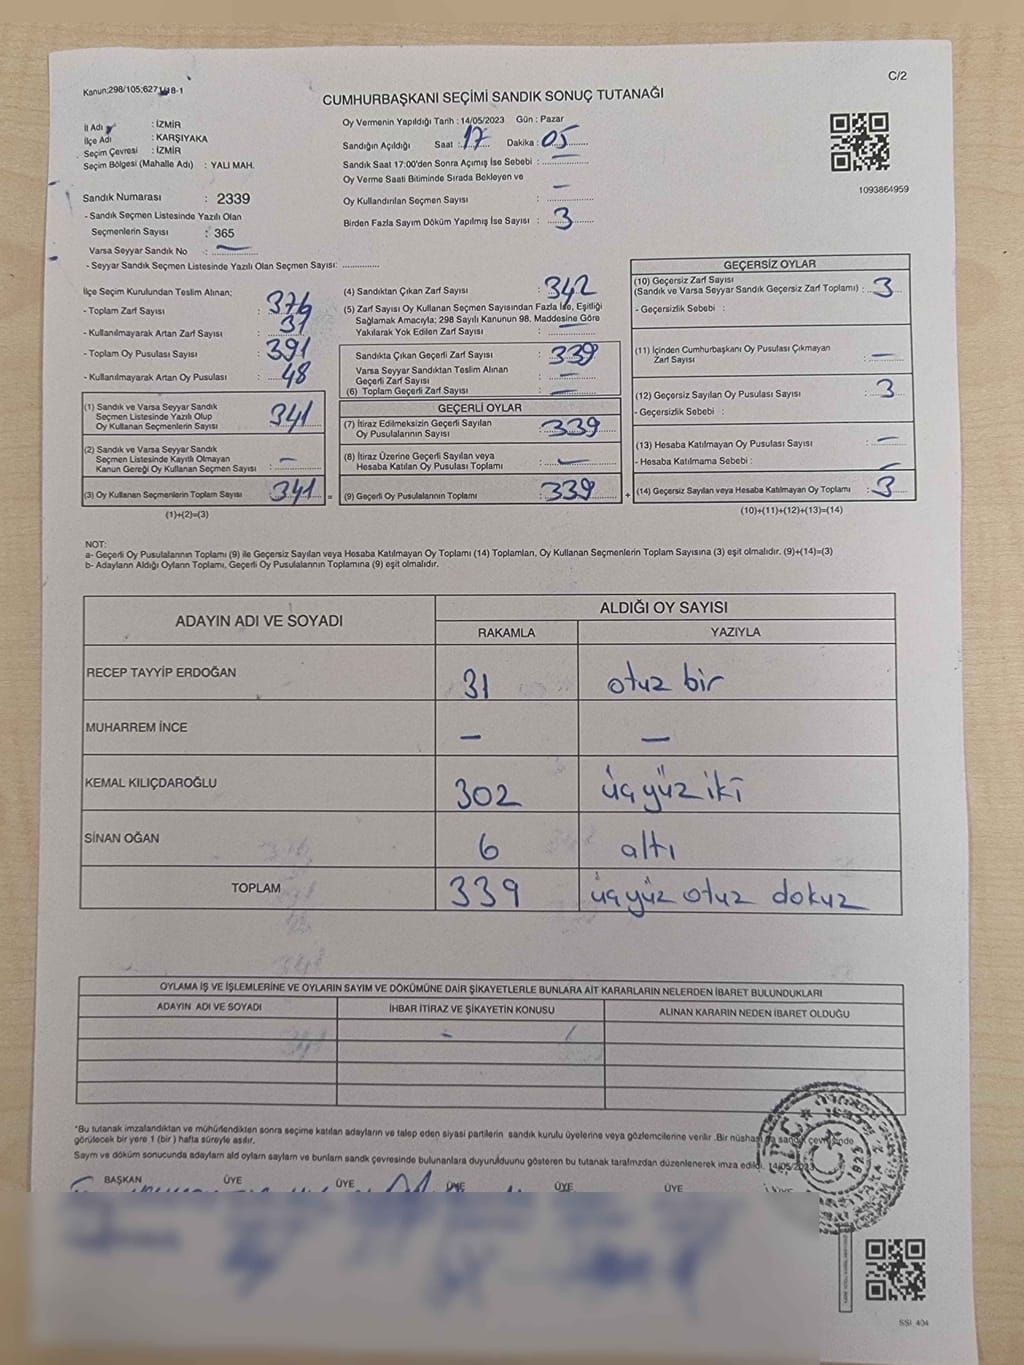 C/2
Kanun:298/105;6271/18-1
CUMHURBAŞKANI SEÇİMİ SANDIK SONUÇ TUTANAĞI
İl Adı : İZMİR
İlçe Adı : KARŞIYAKA
Seçim Çevresi : İZMİR
Seçim Bölgesi (Mahalle Adı) : YALI MAH.
Sandık Numarası : 2339
- Sandık Seçmen Listesinde Yazılı Olan
Seçmenlerin Sayısı : 365
Varsa Seyyar Sandık No : —
- Seyyar Sandık Seçmen Listesinde Yazılı Olan Seçmen Sayısı: ..............
Oy Vermenin Yapıldığı Tarih : 14/05/2023 Gün : Pazar
Sandığın Açıldığı Saat : 17 Dakika : 05
Sandık Saat 17:00'den Sonra Açımış İse Sebebi : —
Oy Verme Saati Bitiminde Sırada Bekleyen ve
Oy Kullandırılan Seçmen Sayısı : —
Birden Fazla Sayım Döküm Yapılmış İse Sayısı : 3
1093864959
İlçe Seçim Kurulundan Teslim Alınan;
- Toplam Zarf Sayısı : 376
- Kullanılmayarak Artan Zarf Sayısı : 31
- Toplam Oy Pusulası Sayısı : 391
- Kullanılmayarak Artan Oy Pusulası : 48
(1) Sandık ve Varsa Seyyar Sandık
Seçmen Listesinde Yazılı Olup
Oy Kullanan Seçmenlerin Sayısı : 341
(2) Sandık ve Varsa Seyyar Sandık
Seçmen Listesinde Kayıtlı Olmayan
Kanun Gereği Oy Kullanan Seçmen Sayısı : —
(3) Oy Kullanan Seçmenlerin Toplam Sayısı : 341 =
(1)+(2)=(3)
(4) Sandıktan Çıkan Zarf Sayısı : 342
(5) Zarf Sayısı Oy Kullanan Seçmen Sayısından Fazla İse, Eşitliği
Sağlamak Amacıyla; 298 Sayılı Kanunun 98. Maddesine Göre
Yakılarak Yok Edilen Zarf Sayısı : —
Sandıkta Çıkan Geçerli Zarf Sayısı : 339
Varsa Seyyar Sandıktan Teslim Alınan
Geçerli Zarf Sayısı : —
(6) Toplam Geçerli Zarf Sayısı : —
GEÇERLİ OYLAR
(7) İtiraz Edilmeksizin Geçerli Sayılan
Oy Pusulalarının Sayısı : 339
(8) İtiraz Üzerine Geçerli Sayılan veya
Hesaba Katılan Oy Pusulası Toplamı : —
(9) Geçerli Oy Pusulalarının Toplamı : 339 +
GEÇERSİZ OYLAR
(10) Geçersiz Zarf Sayısı
(Sandık ve Varsa Seyyar Sandık Geçersiz Zarf Toplamı) : 3
- Geçersizlik Sebebi :
(11) İçinden Cumhurbaşkanı Oy Pusulası Çıkmayan
Zarf Sayısı : —
(12) Geçersiz Sayılan Oy Pusulası Sayısı : 3
- Geçersizlik Sebebi :
(13) Hesaba Katılmayan Oy Pusulası Sayısı : —
- Hesaba Katılmama Sebebi : —
(14) Geçersiz Sayılan veya Hesaba Katılmayan Oy Toplamı : 3
(10)+(11)+(12)+(13)=(14)
NOT:
a- Geçerli Oy Pusulalarının Toplamı (9) ile Geçersiz Sayılan veya Hesaba Katılmayan Oy Toplamı (14) Toplamları, Oy Kullanan Seçmenlerin Toplam Sayısına (3) eşit olmalıdır. (9)+(14)=(3)
b- Adayların Aldığı Oyların Toplamı, Geçerli Oy Pusulalarının Toplamına (9) eşit olmalıdır.
ADAYIN ADI VE SOYADI ALDIĞI OY SAYISI
RAKAMLA YAZIYLA
RECEP TAYYİP ERDOĞAN 31 otuz bir
MUHARREM İNCE — —
KEMAL KILIÇDAROĞLU 302 üçyüz iki
SİNAN OĞAN 6 altı
TOPLAM 339 üçyüz otuz dokuz
OYLAMA İŞ VE İŞLEMLERİNE VE OYLARIN SAYIM VE DÖKÜMÜNE DAİR ŞİKAYETLERLE BUNLARA AİT KARARLARIN NELERDEN İBARET BULUNDUKLARI
ADAYIN ADI VE SOYADI İHBAR İTİRAZ VE ŞİKAYETİN KONUSU ALINAN KARARIN NEDEN İBARET OLDUĞU
*Bu tutanak imzalandıktan ve mühürlendikten sonra seçime katılan adayların ve talep eden siyasi partilerin sandık kurulu üyelerine veya gözlemcilerine verilir .Bir nüshası da sandık çevresinde
görülecek bir yere 1 (bir ) hafta süreyle asılır.
Sayım ve döküm sonucunda adayların ald oyların sayların ve bunların sandk çevresinde bulunanlara duyurulduunu gösteren bu tutanak tarafmzdan düzenlenerek imza edildi. 14/05/2023
BAŞKAN ÜYE ÜYE ÜYE ÜYE ÜYE ÜYE
SSİ_404